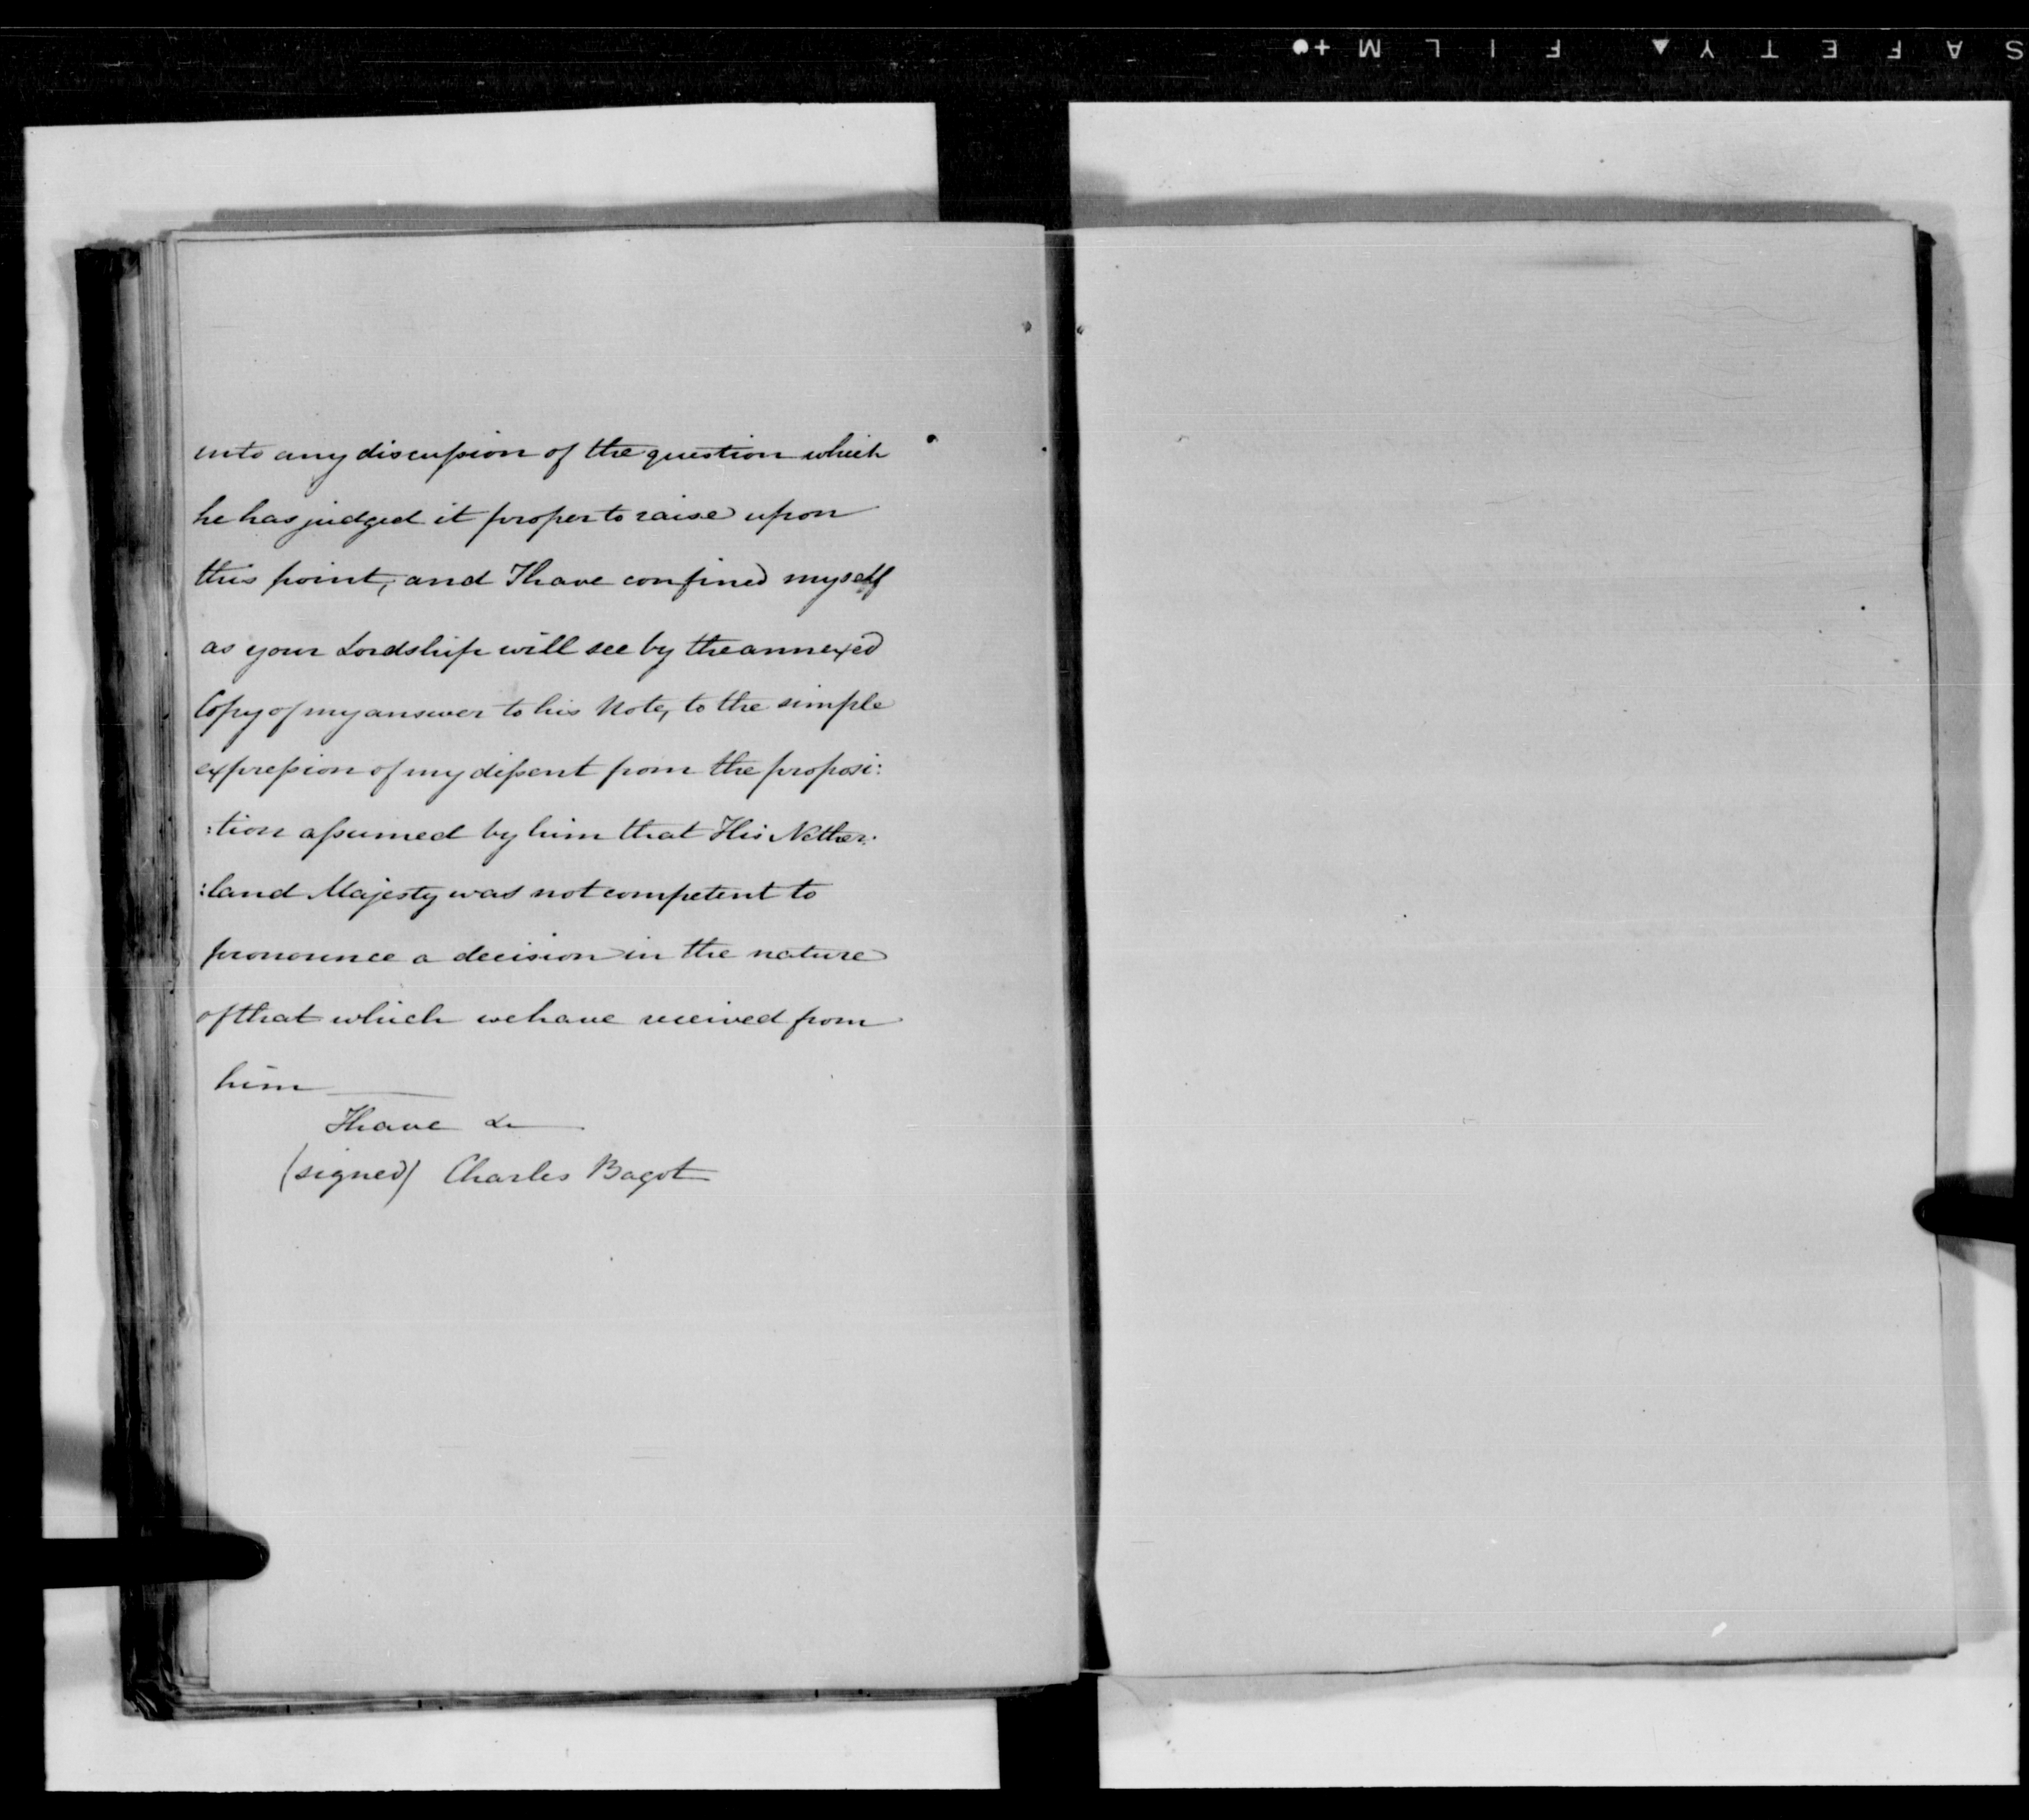 SAFETY▲FILM+●
into any discussion of the question which
he has judged it proper to raise upon
this point, and I have confined myself
as your Lordship will see by the annexed
Copy of my answer to his Note, to the simple
expression of my dissent from the proposi:
:tion assumed by him that His Nether:
:land Majesty was not competent to
pronounce a decision in the nature
of that which we have received from
him
I have &
(signed) Charles Bagot